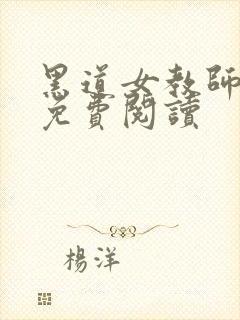 黑道女教師
免費閱讀
楊洋